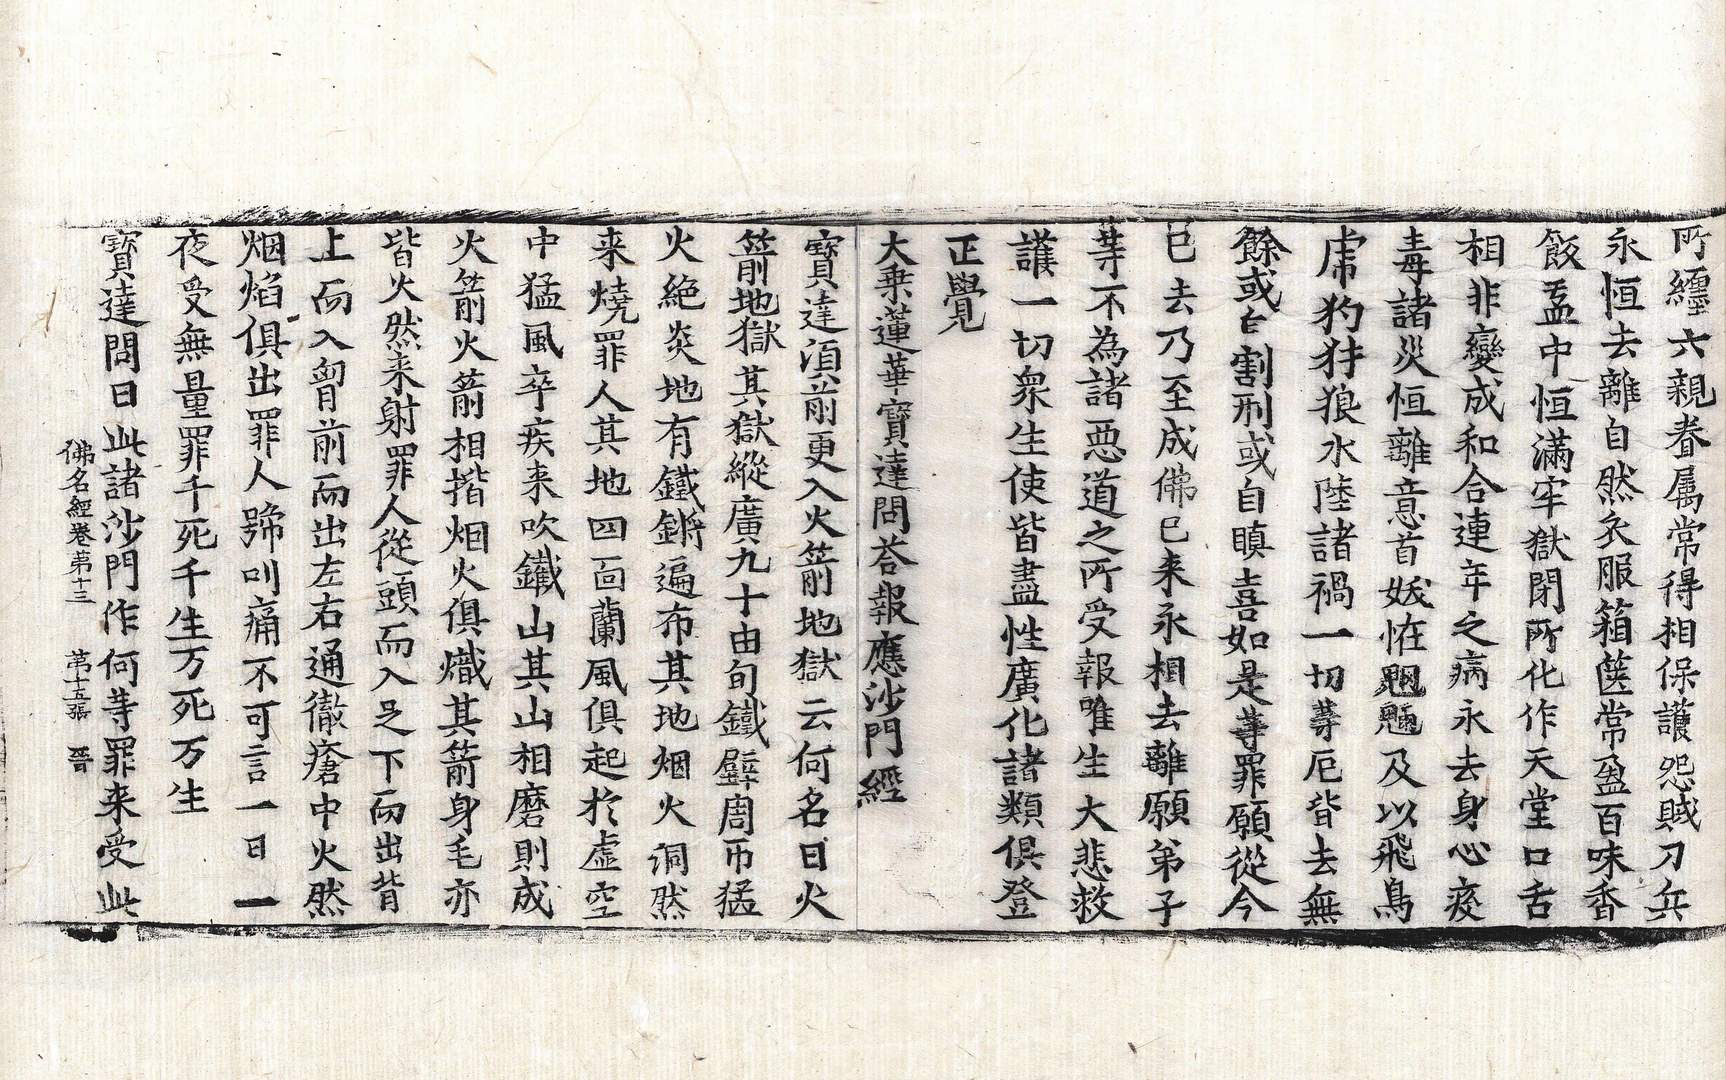 所纏六親眷属常得相保護怨賊刀兵
永恒去離自然衣服箱篋常盈百味香
飯盂中恒滿牢獄閉所化作天堂口舌
相非變成和合連年之病永去身心疫
毒諸災恒離意首妖恠魍魎及以飛鳥
虎犳犲狼水陸諸禍一切䓁厄皆去無
餘或亡割刑或自瞋喜如是䓁罪願從今
已去乃至成佛已来永相去離願弟子
䓁不為諸惡道之所受報唯生大悲救
護一切衆生使皆盡性廣化諸類俱登
正覺
大乗蓮華寳達問荅報應沙門經
寳達湏前更入火箭地獄云何名曰火
箭地獄其獄縱廣九十由旬鐵壁周帀猛
火絶炎地有鐵鏘遍布其地烟火洞然
来燒罪人其地四面蘭風俱起於虛空
中猛風卒疾来吹鐵山其山相磨則成
火箭火箭相揩烟火俱熾其箭身毛亦
皆火然来射罪人從頭而入足下而出背
上而入胷前而出左右通徹瘡中火然
烟焰俱出罪人號叫痛不可言一日一
夜受無量罪千死千生万死万生
寳達問曰此諸沙門作何䓁罪来受此
佛名經卷第十三　第十五張　晉